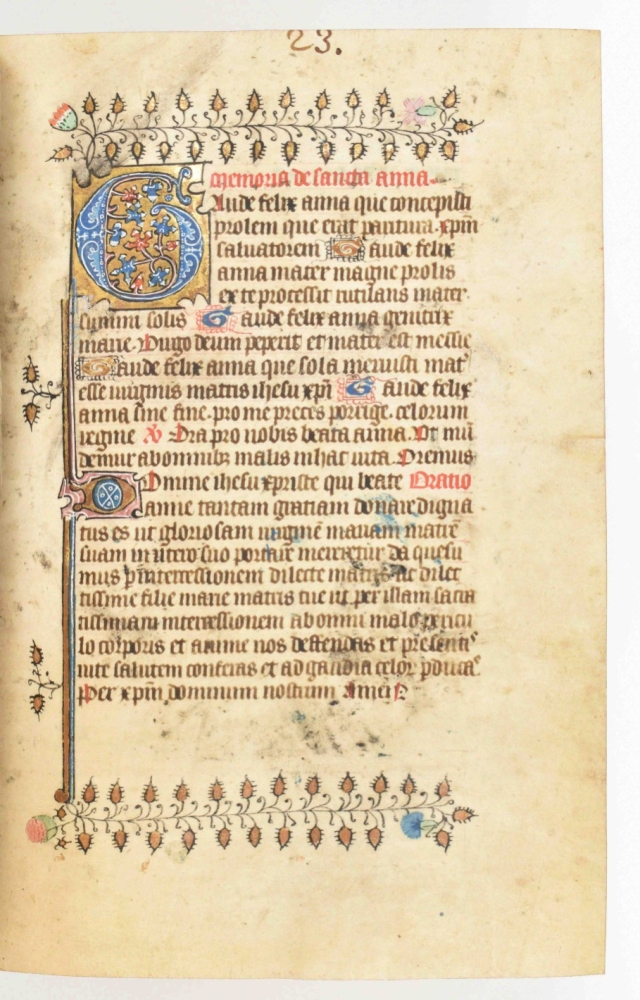 23.
Memoria de sancta anna.
Gaude felix anna que concepisti
prolem que erat paritura. xpm
saluatorem Gaude felix
anna mater magne prolis
ex te processit rutilans mater
summi solis Gaude felix anna genitrix
marie. Uirgo deum peperit et mater est messie
Gaude felix anna que sola meruisti mat
esse uirginis matris ihesu xpi Gaude felix
anna sine fine. pro me preces porrige. celorum
regine V Ora pro nobis beata anna. Ut mu
demur ab omnibz malis in hac uita. Oremus
Domine ihesu xpriste qui beate Oratio
anne tantam gratiam donare digna
tus es ut gloriosam uirginē mariam matrē
suam in utero suo portare mereretur da quesu
mus intercessionem dilecte matris ac dilec
tissime filie marie matris tue ut per illam sacra
tissimam intercessionem ab omni malo pericu
lo corporis et anime nos deffendas et presenti
uite salutem conferas et ad gaudia celor pducas
Per xpm dominum nostrum Amen